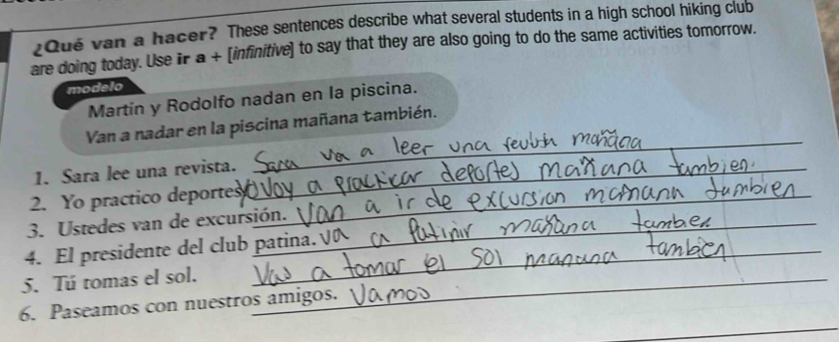 ¿Qué van a hacer? These sentences describe what several students in a high school hiking club
are doing today. Use ir a + [infinitive] to say that they are also going to do the same activities tomorrow.
modelo
Martín y Rodolfo nadan en la piscina.
Van a nadar en la piscina mañana también.
1. Sara lee una revista. Sara va a leer una mañana
2. Yo practico deportes. Yo Voy a practicar deportes mañana tambien.
3. Ustedes van de excursión. Van a ir de excursion mañana tambien
4. El presidente del club patina. va a Patinir mañana tambien
5. Tú tomas el sol. Vas a tomar el sol manana tambien
6. Paseamos con nuestros amigos. Vamos